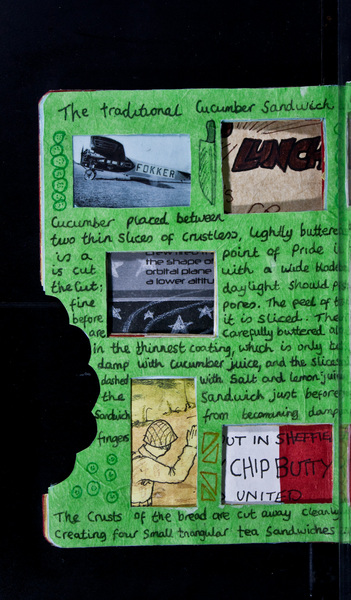 The traditional Cucumber Sandwich
FOKKER
LUNCH
Cucumber placed between
two thin slices of crustless, lightly buttere
is a point of Pride i
is cut with a wide blad
the Cut; daylight should pa
fine pores. The peel of t
before it is sliced. The
are carefully buttered a
the shape o
orbital plane
a lower altitu
in the thinnest coating, which is only t
damp with cucumber juice, and the slices
dashed with Salt and lemon juic
the Sandwich just before
Sandwich from becoming damp
fingers
UT IN SHEFFIE
CHIP BUTTY
UNITED
The Crusts of the bread are cut away cleanl
Creating four small triangular tea Sandwiches